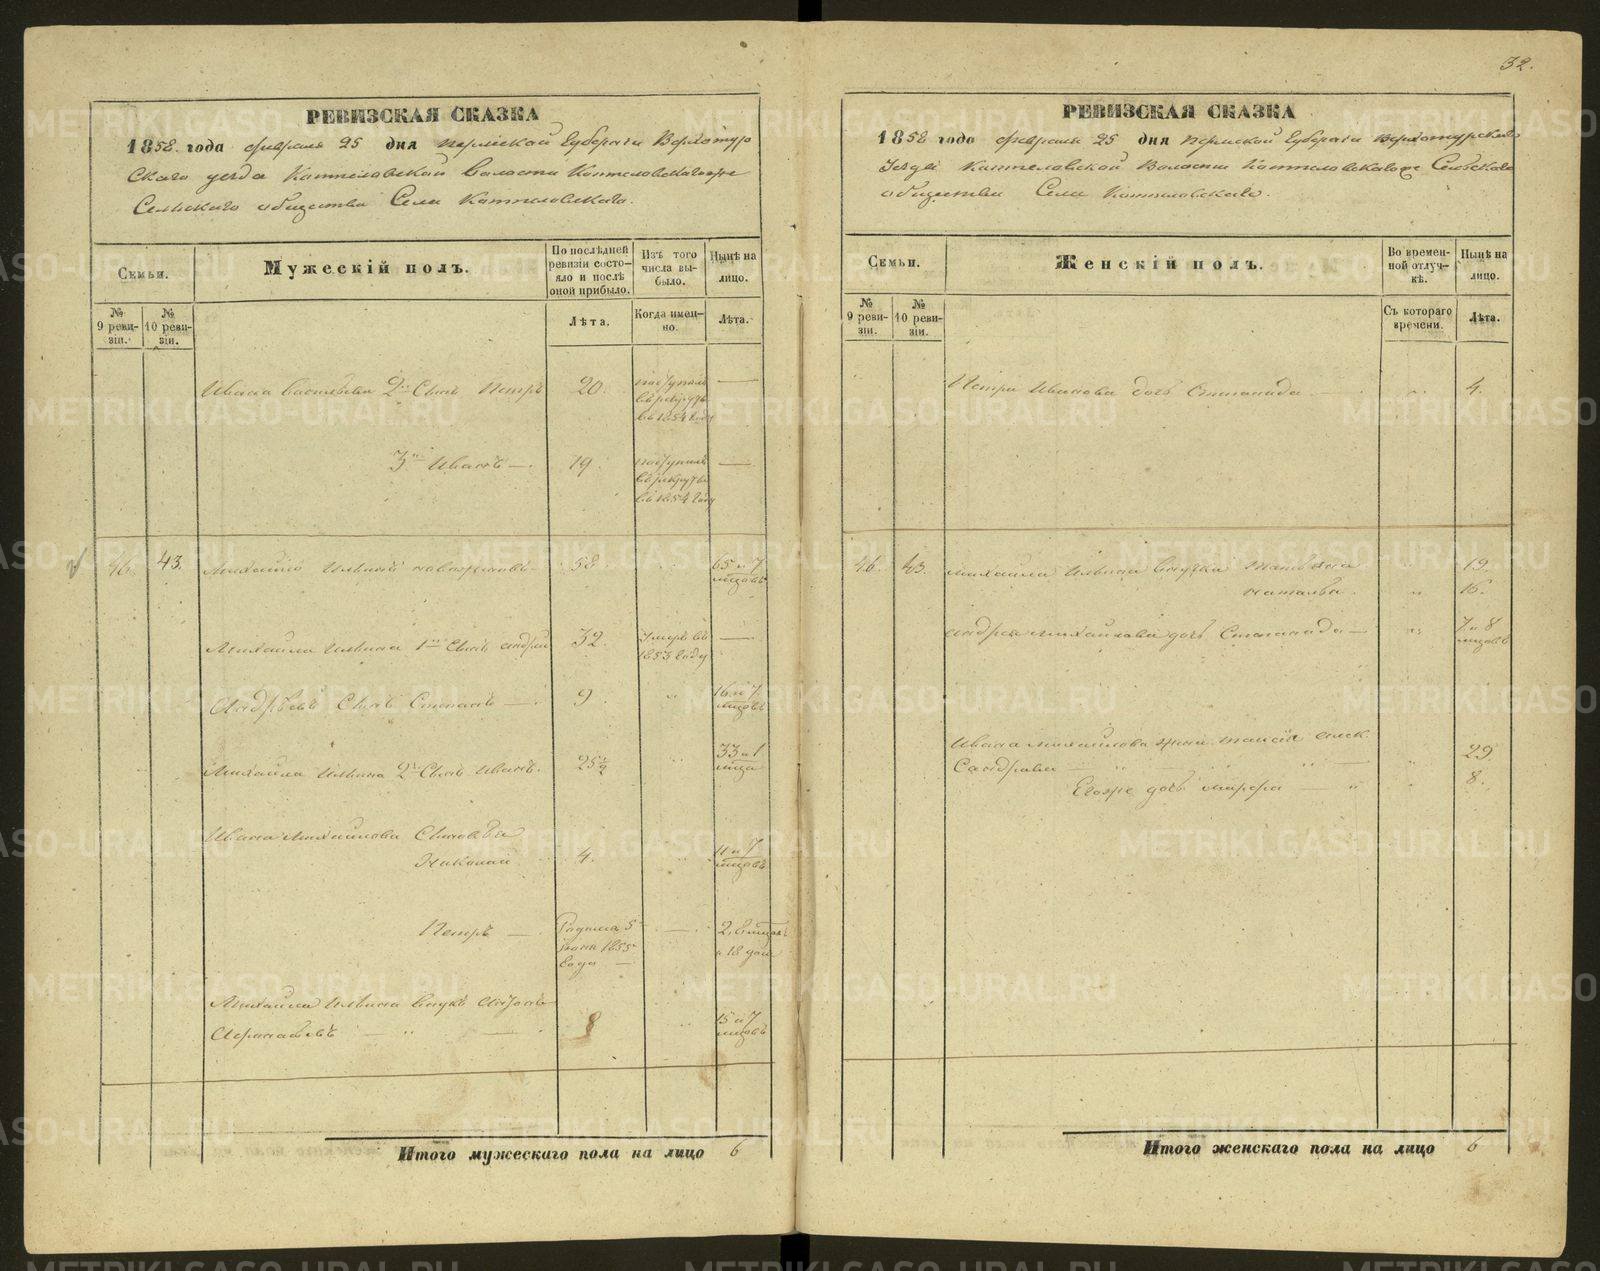 32.
РЕВИЗСКАЯ СКАЗКА
1858 года февраля 25 дня Пермской Губернии Верхотур
скаго уезда Коптеловской Волости Коптеловскагоже
Сельскаго общества Села Коптеловскаго.
Семьи.
Мужескій полъ.
По послѣдней ревизіи состояло и послѣ оной прибыло.
Изъ того числа выбыло.
Нынѣ на лицо.
№ 9 ревизіи.
№ 10 ревизіи.
Лѣта.
Когда именно.
Лѣта.
Ивана 2й Сынъ Петръ 20. поступилъ в рекруты в 1854 году —
3й Иванъ — 19. поступилъ в рекруты в 1854 году —
46. 43. Михайло Ильинъ 58 " 65 и 7 мѣсяцовъ
Михайла Ильина 1й Сынъ Андрей 32. Умеръ въ 1853 году —
Андрѣевъ Сынъ Степанъ — 9 " 16 и 7 мѣсяцовъ
Михайла Ильина 2й Сынъ Иванъ. 25½ " 33 и 1 мѣсяца
Ивана Михайлова Сыновья
Николай 4. " 11 и 7 мѣсяцовъ
Петръ — 1855 года — — 2, 8 мѣсяцовъ и 18 дней
Михайла Ильина Внукъ
— " — 8 " 15 и 7 мѣсяцовъ
Итого мужескаго пола на лицо 6
РЕВИЗСКАЯ СКАЗКА
1858 года февраля 25 дня Пермской Губернии Верхотурскаго
Уезда Коптеловской Волости Коптеловскагоже Сельскаго
общества Села Коптеловскаго.
Семьи.
Женскій полъ.
Во временной отлучкѣ.
Нынѣ на лицо.
№ 9 ревизіи.
№ 10 ревизіи.
Съ котораго времени.
Лѣта.
Петра Иванова дочь Степанида — " 4.
46. 43. Михайла Ильина Внучки Татьяна " 19.
Наталья " 16.
Андрея Михайлова дочь Степанида — " 7 и 8 мѣсяцовъ
Ивана Михайлова жена Таисія Алек
сандрова — " " — " 29.
Егоже дочь Марфа — " 8.
Итого женскаго пола на лицо 6
METRIKI.GASO-URAL.RU